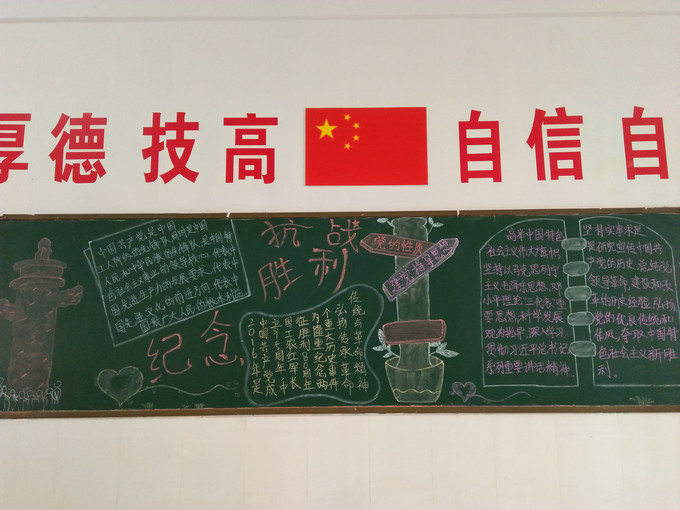 厚德 技高 自信 自
中国共产党是中国
工人阶级的先锋队,同时是中国
人民和中华民族的先锋队,是中国特
色社会主义事业的领导核心,代表中
国先进生产力的发展要求,代表中
国先进文化的前进方向,代表中
国最广大人民的根本利益
抗战
胜利
纪念
2016年是
中国共产党成
立95周年、中
国工农红军长
征胜利80周年
为隆重纪念两
个重大历史事件
弘扬传承革命
传统与革命精神
党的性质
建党指导思想
高举中国特色
社会主义伟大旗帜,
坚持以马克思列宁
主义、毛泽东思想、邓
小平理论、“三个代表”重
要思想、科学发展
观为指导,深入学习
贯彻习近平总书记
系列重要讲话精神
坚持实事求是
是历史宣传中国共
产党的历史,总结党
领导革命、建设和改
革的历史经验,弘扬
党的优良传统和
作风,夺取中国特
色社会主义新胜
利。